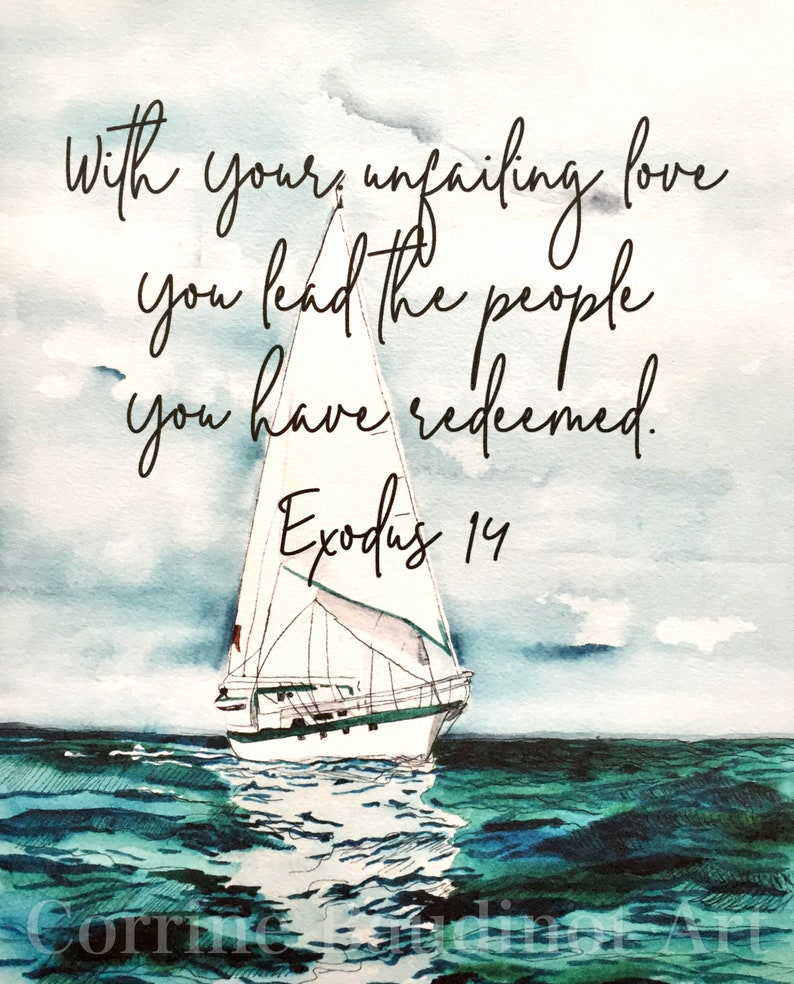 With your unfailing love
you lead the people
you have redeemed.
Exodus 14
Corrine Boudinot Art